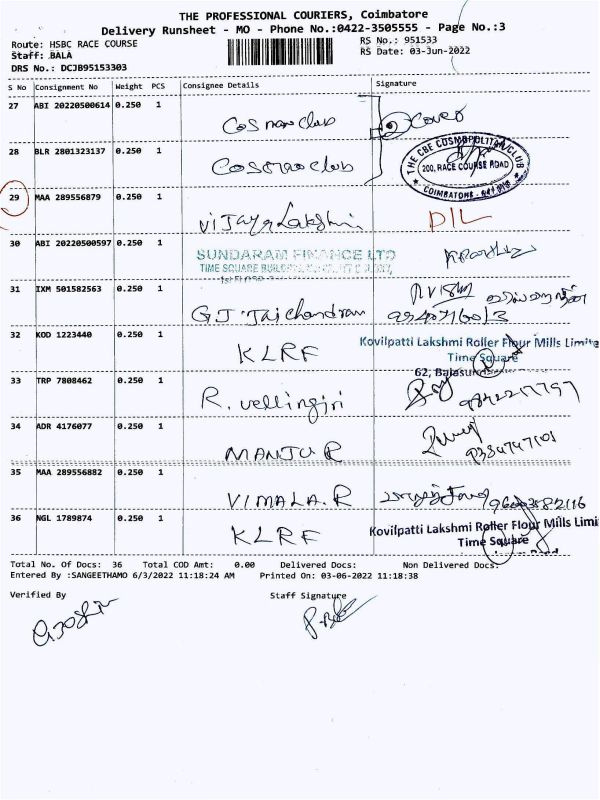 THE PROFESSIONAL COURIERS, Coimbatore
Delivery Runsheet - MO - Phone No.:0422-3505555 - Page No.:3
Route: HSBC RACE COURSE RS No.: 951533
Staff: BALA RS Date: 03-Jun-2022
DRS No.: DCJB95153303
S No Consignment No Weight PCS Consignee Details Signature
27 ABI 20220500614 0.250 1 Cosmo club 2 Cover
28 BLR 2801323137 0.250 1 Cosmo club
THE CBE COSMOPOLITAN CLUB
200, RACE COURSE ROAD
COIMBATORE
29 MAA 289556879 0.250 1 Vijaya Lakshmi D/L
30 ABI 20220500597 0.250 1 SUNDARAM FINANCE LTD
TIME SQUARE
31 IXM 501582563 0.250 1 G J. Jaichandran
32 KOD 1223440 0.250 1 KLRF Kovilpatti Lakshmi Roller Flour Mills Limite
Time Square
62,
33 TRP 7808462 0.250 1 R. vellingiri
34 ADR 4176077 0.250 1 MANJU R 9384747101
35 MAA 289556882 0.250 1 VIMALA.R
36 NGL 1789874 0.250 1 KLRF Kovilpatti Lakshmi Roller Flour Mills Limi
Time Square
Total No. Of Docs: 36 Total COD Amt: 0.00 Delivered Docs: Non Delivered Docs:
Entered By :SANGEETHAMO 6/3/2022 11:18:24 AM Printed On: 03-06-2022 11:18:38
Verified By Staff Signature